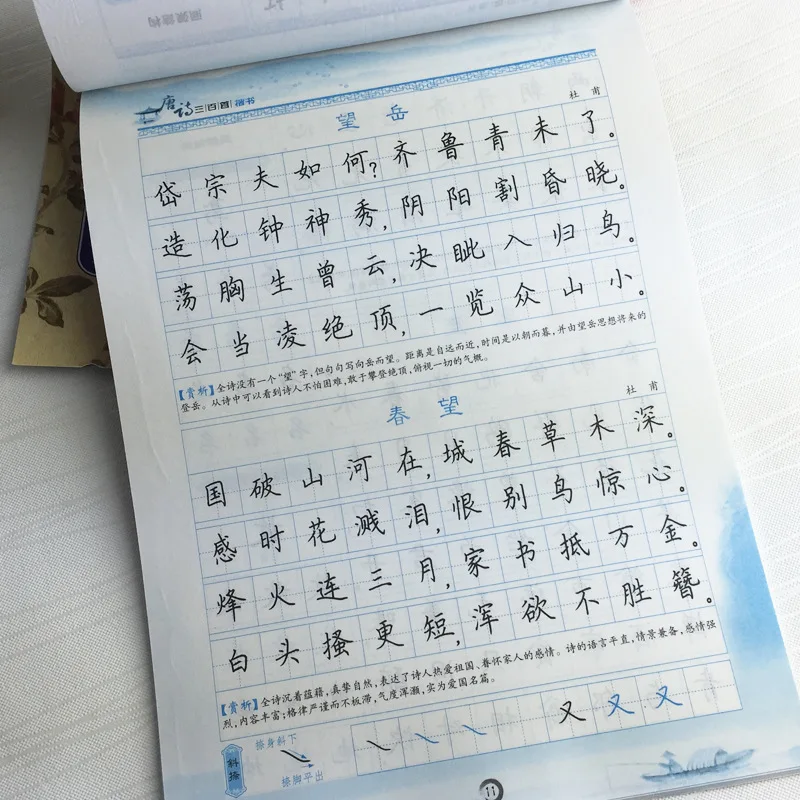 唐诗三百首 楷书
望岳
杜甫
岱宗夫如何?齐鲁青未了。
造化钟神秀,阴阳割昏晓。
荡胸生曾云,决眦入归鸟。
会当凌绝顶,一览众山小。
【赏析】全诗没有一个“望”字,但句句写向岳而望。距离是自远而近,时间是以朝而暮,并由望岳思想将来的
登岳。从诗中可以看到诗人不怕困难,敢于攀登绝顶,俯视一切的气概。
春望
杜甫
国破山河在,城春草木深。
感时花溅泪,恨别鸟惊心。
烽火连三月,家书抵万金。
白头搔更短,浑欲不胜簪。
【赏析】全诗沉着蕴藉,真挚自然,表达了诗人热爱祖国、眷怀家人的感情。诗的语言平直,情景兼备,感情强
烈,内容丰富;格律严谨而不板滞,气度浑灏,实为爱国名篇。
斜捺
捺身斜下
捺脚平出
又又又
11